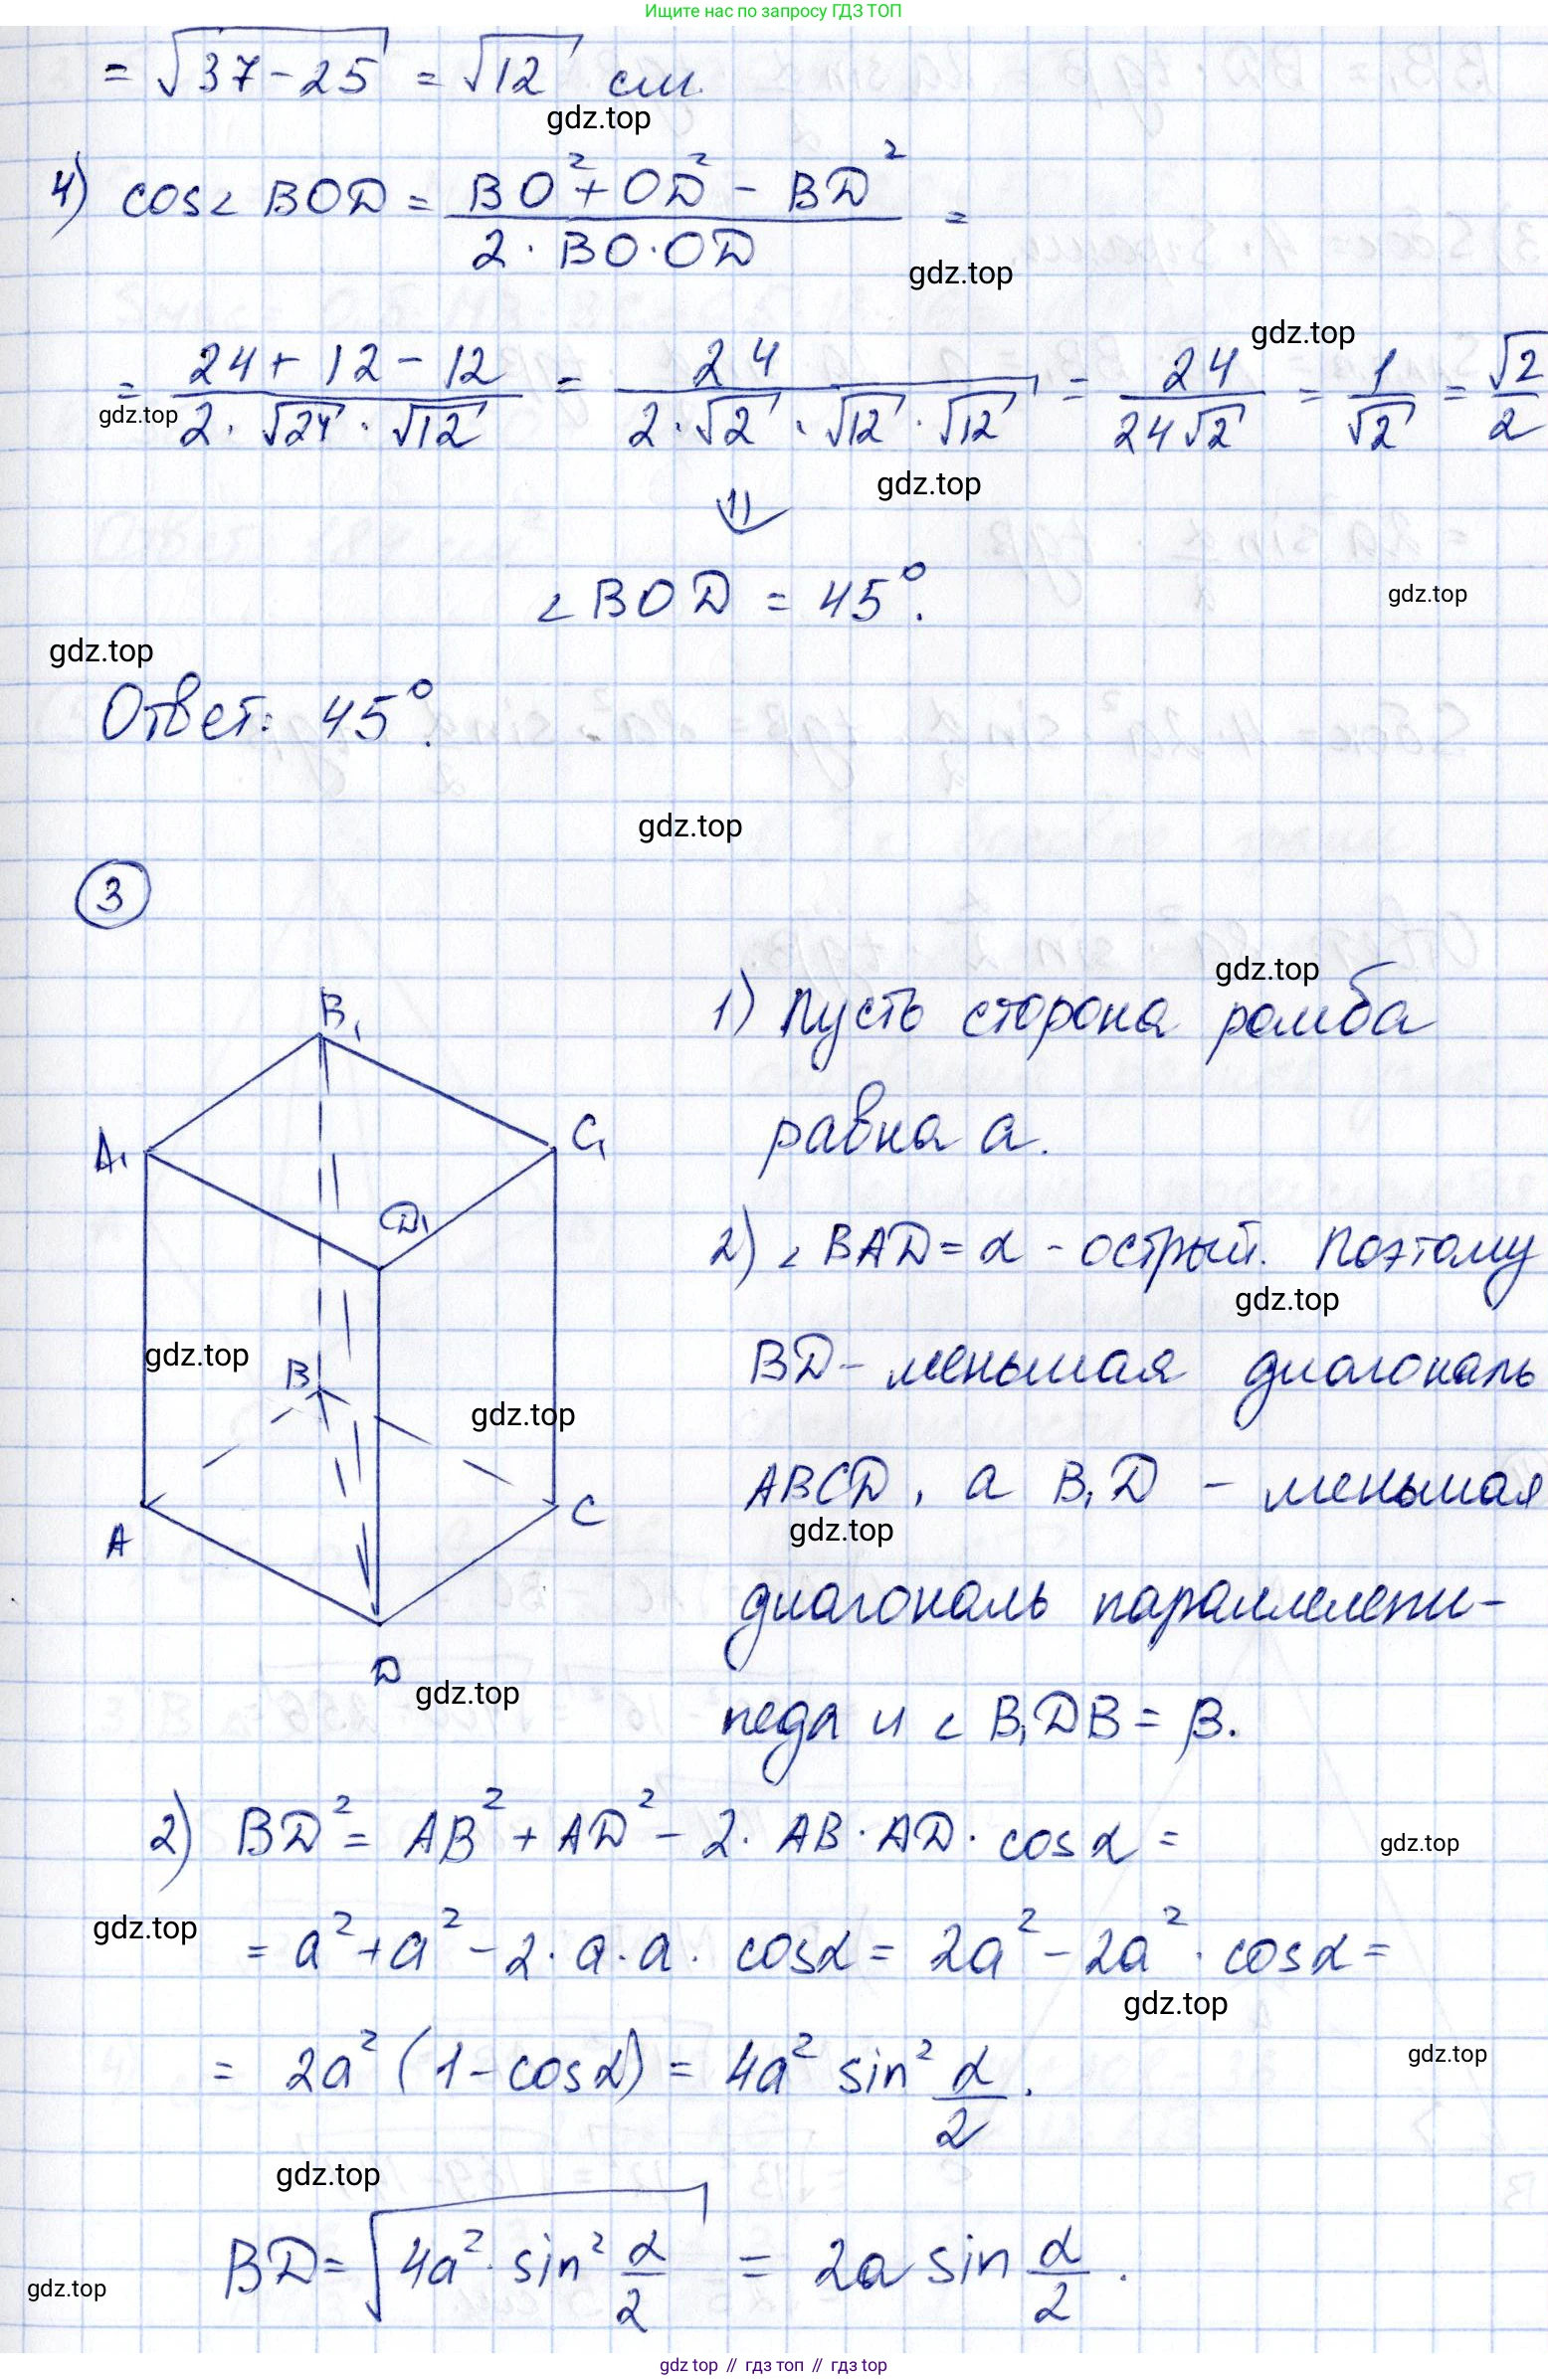 Ищите нас по запросу ГДЗ ТОП
= √(37 - 25) = √12 см.
gdz.top
4) cos∠BOD = (BO² + OD² - BD²) / (2 · BO · OD) =
gdz.top
gdz.top
= (24 + 12 - 12) / (2 · √24 · √12) = 24 / (2 · √2 · √12 · √12) = 24 / (24√2) = 1/√2 = √2/2
gdz.top
gdz.top
⇓
∠BOD = 45°.
gdz.top
gdz.top
Ответ: 45°.
gdz.top
3
B₁
A₁
C₁
D₁
B
A
C
D
gdz.top
gdz.top
gdz.top
1) Пусть сторона ромба
gdz.top
равна a.
2) ∠BAD = α - острый. Поэтому
gdz.top
BD - меньшая диагональ
ABCD, а B₁D - меньшая
gdz.top
диагональ параллелепи-
педа и ∠B₁DB = β.
2) BD² = AB² + AD² - 2 · AB · AD · cos α =
gdz.top
gdz.top
= a² + a² - 2 · a · a · cos α = 2a² - 2a² · cos α =
gdz.top
= 2a² (1 - cos α) = 4a² sin² α/2.
gdz.top
gdz.top
BD = √(4a² · sin² α/2) = 2a sin α/2.
gdz.top
gdz top // гдз топ // гдз top